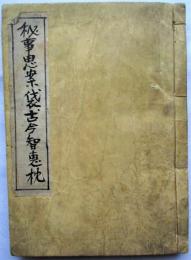 秘事思案袋古今智恵枕